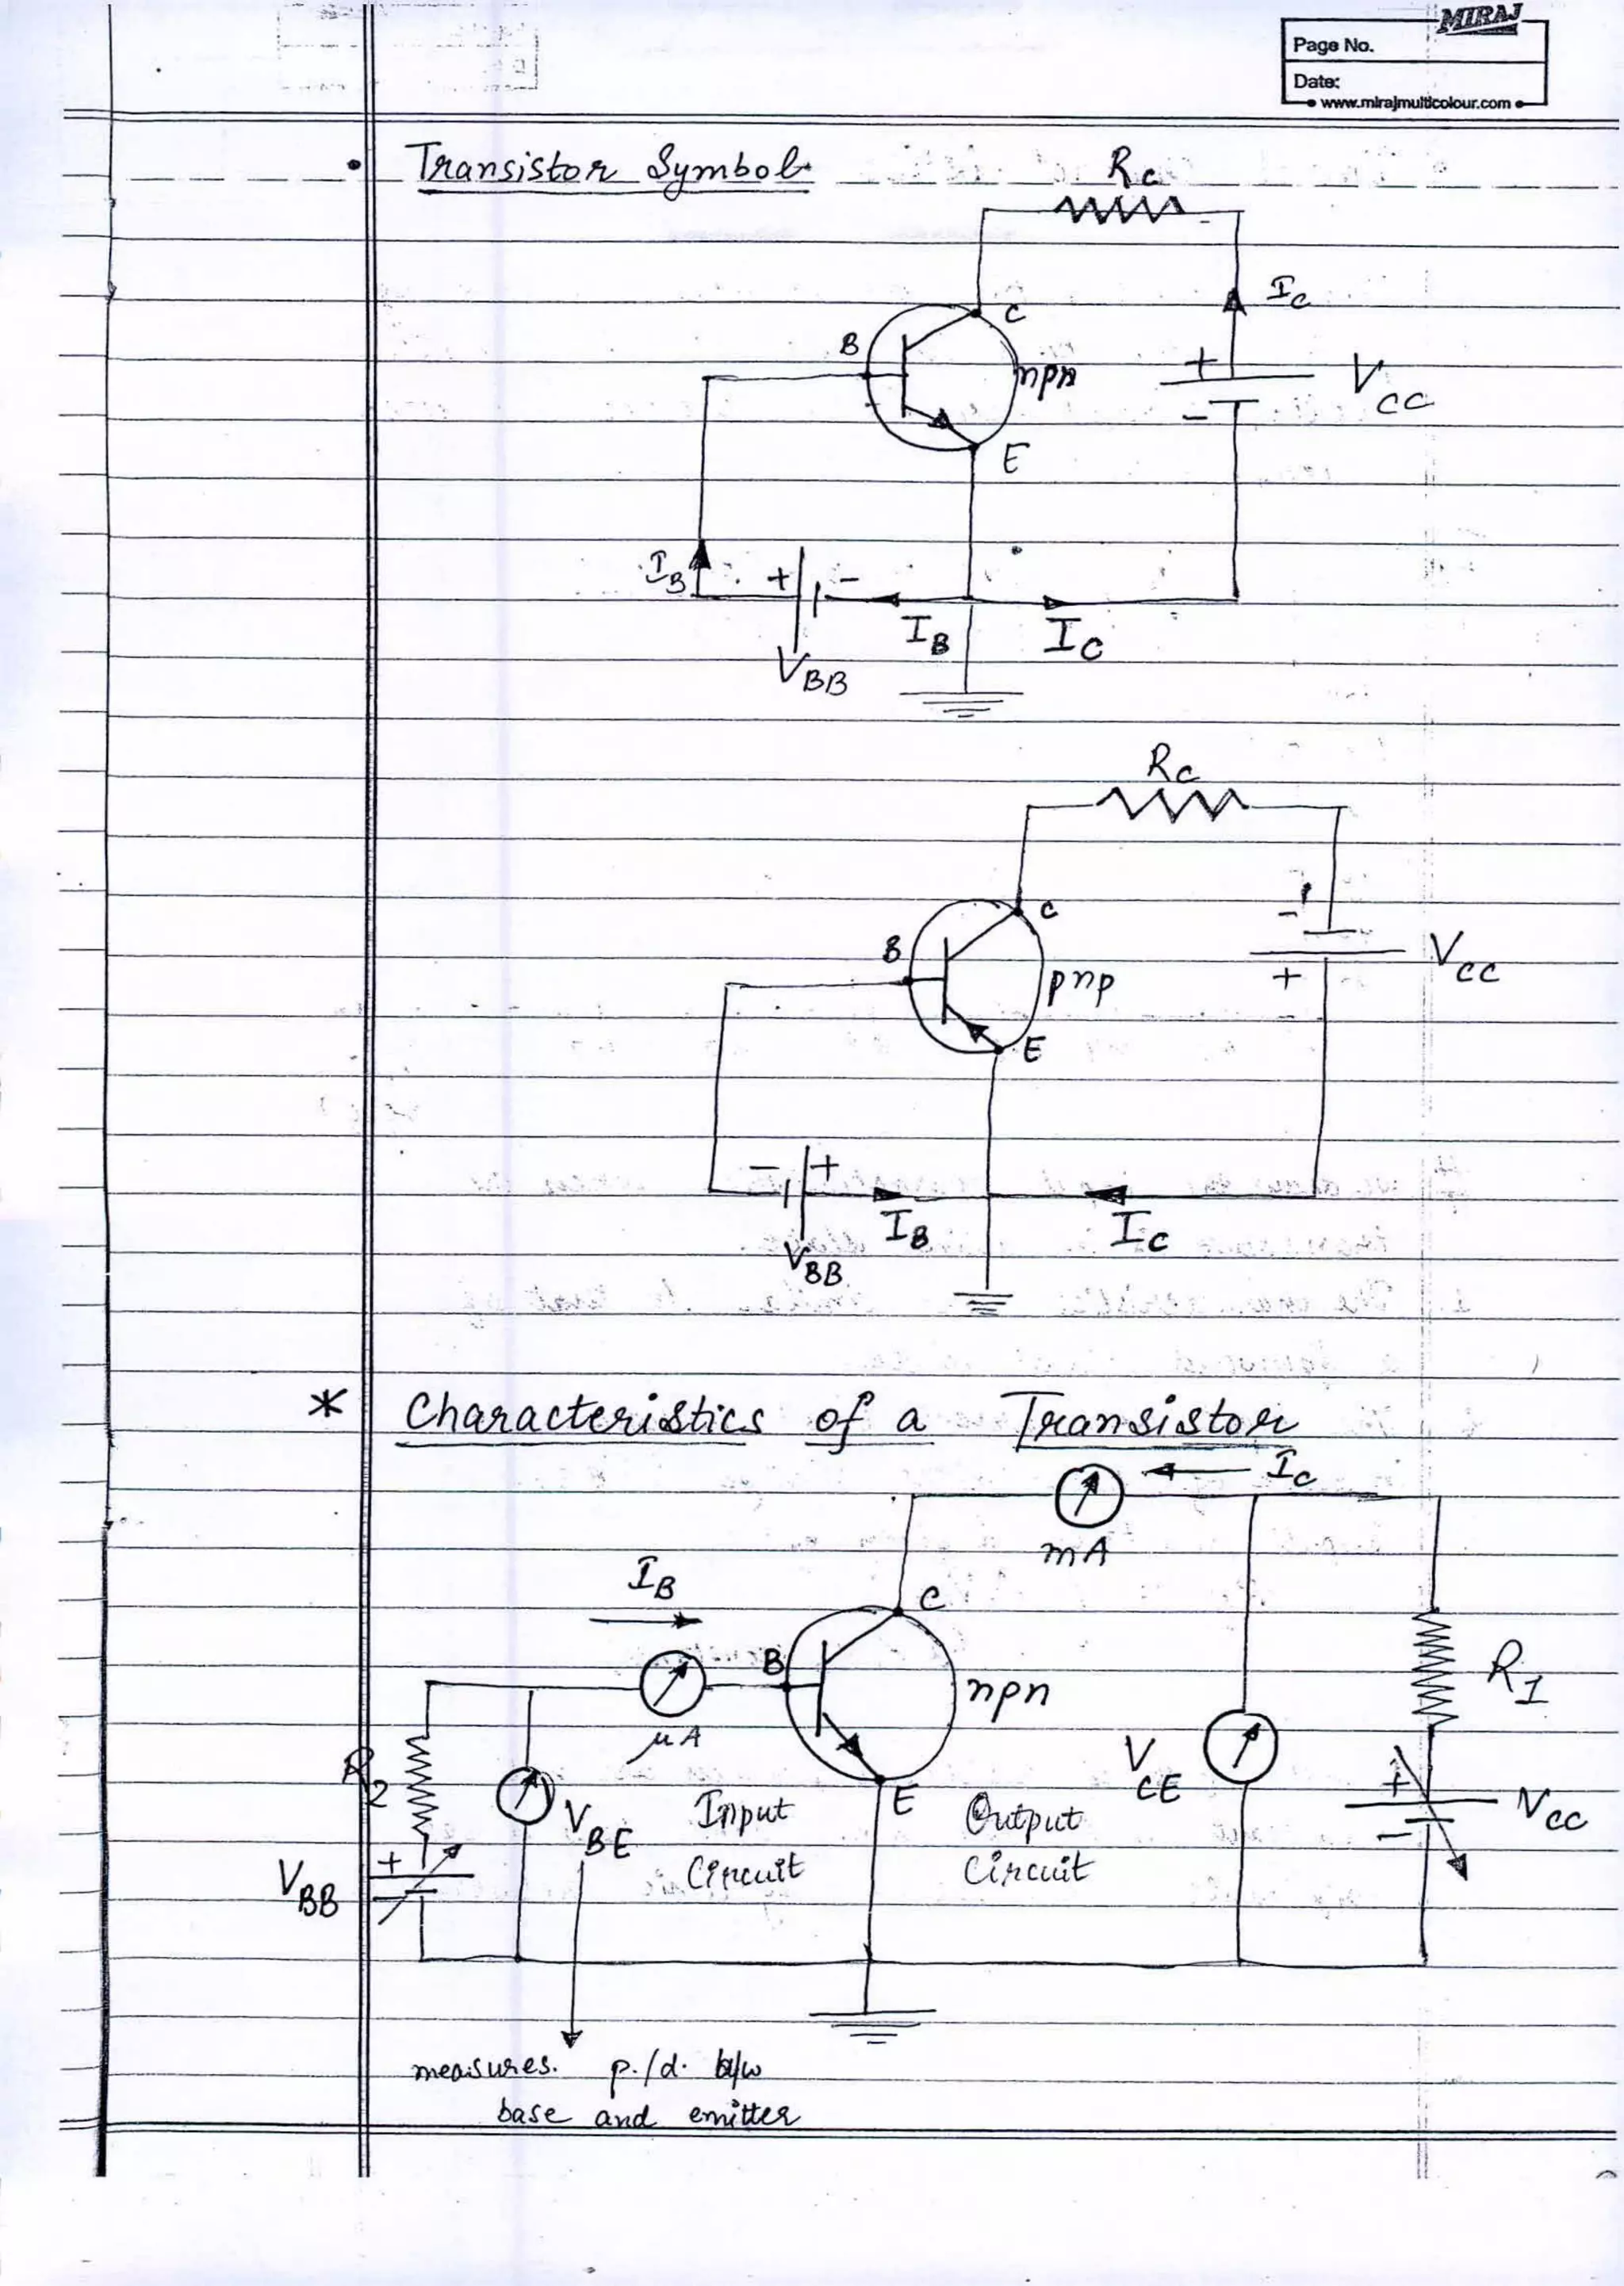 MIRAJ
Page No.
Date:
www.mirajmulticolour.com
• Transistor Symbol
Rc
Ic
C
B
npn
+
-
VCC
E
IB
+ -
IB
IC
VBB
Rc
C
-
B
pnp
VCC
+
E
- +
IB
IC
VBB
* Characteristics of a Transistor
Ic
mA
IB
C
B
npn
R1
μA
R2
VCE
E
VBE
Input
Circuit
Output
Circuit
+
-
VCC
VBB
+
-
measures. p./d. b/w
base and emitter